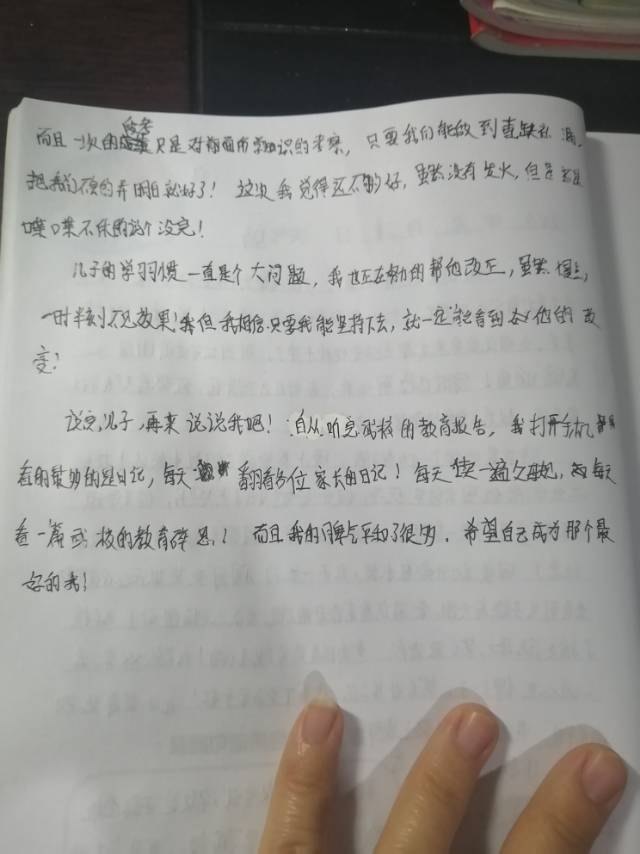 而且一次的考只是对前面所学知识的考察，只要我们能做到查缺补漏，
把我们不会的弄明白就好了！这次我觉得还不够好，虽然没有发火，但是还是
喋喋不休的说个没完！
儿子的学习习惯一直是个大问题，我也正在努力的帮他改正，虽然
一时半刻不见效果！我但我相信只要我能坚持下去，就一定能看到他的改
变！
说完儿子，再来说说我吧！自从听完战校的教育报告，我打开手机
看的最多的是日记，每天翻看各位家长的日记！每天读一遍父母规，每天
看一篇战校的教育碎思！而且我的脾气平和了很多，希望自己成为那个最
好的我！